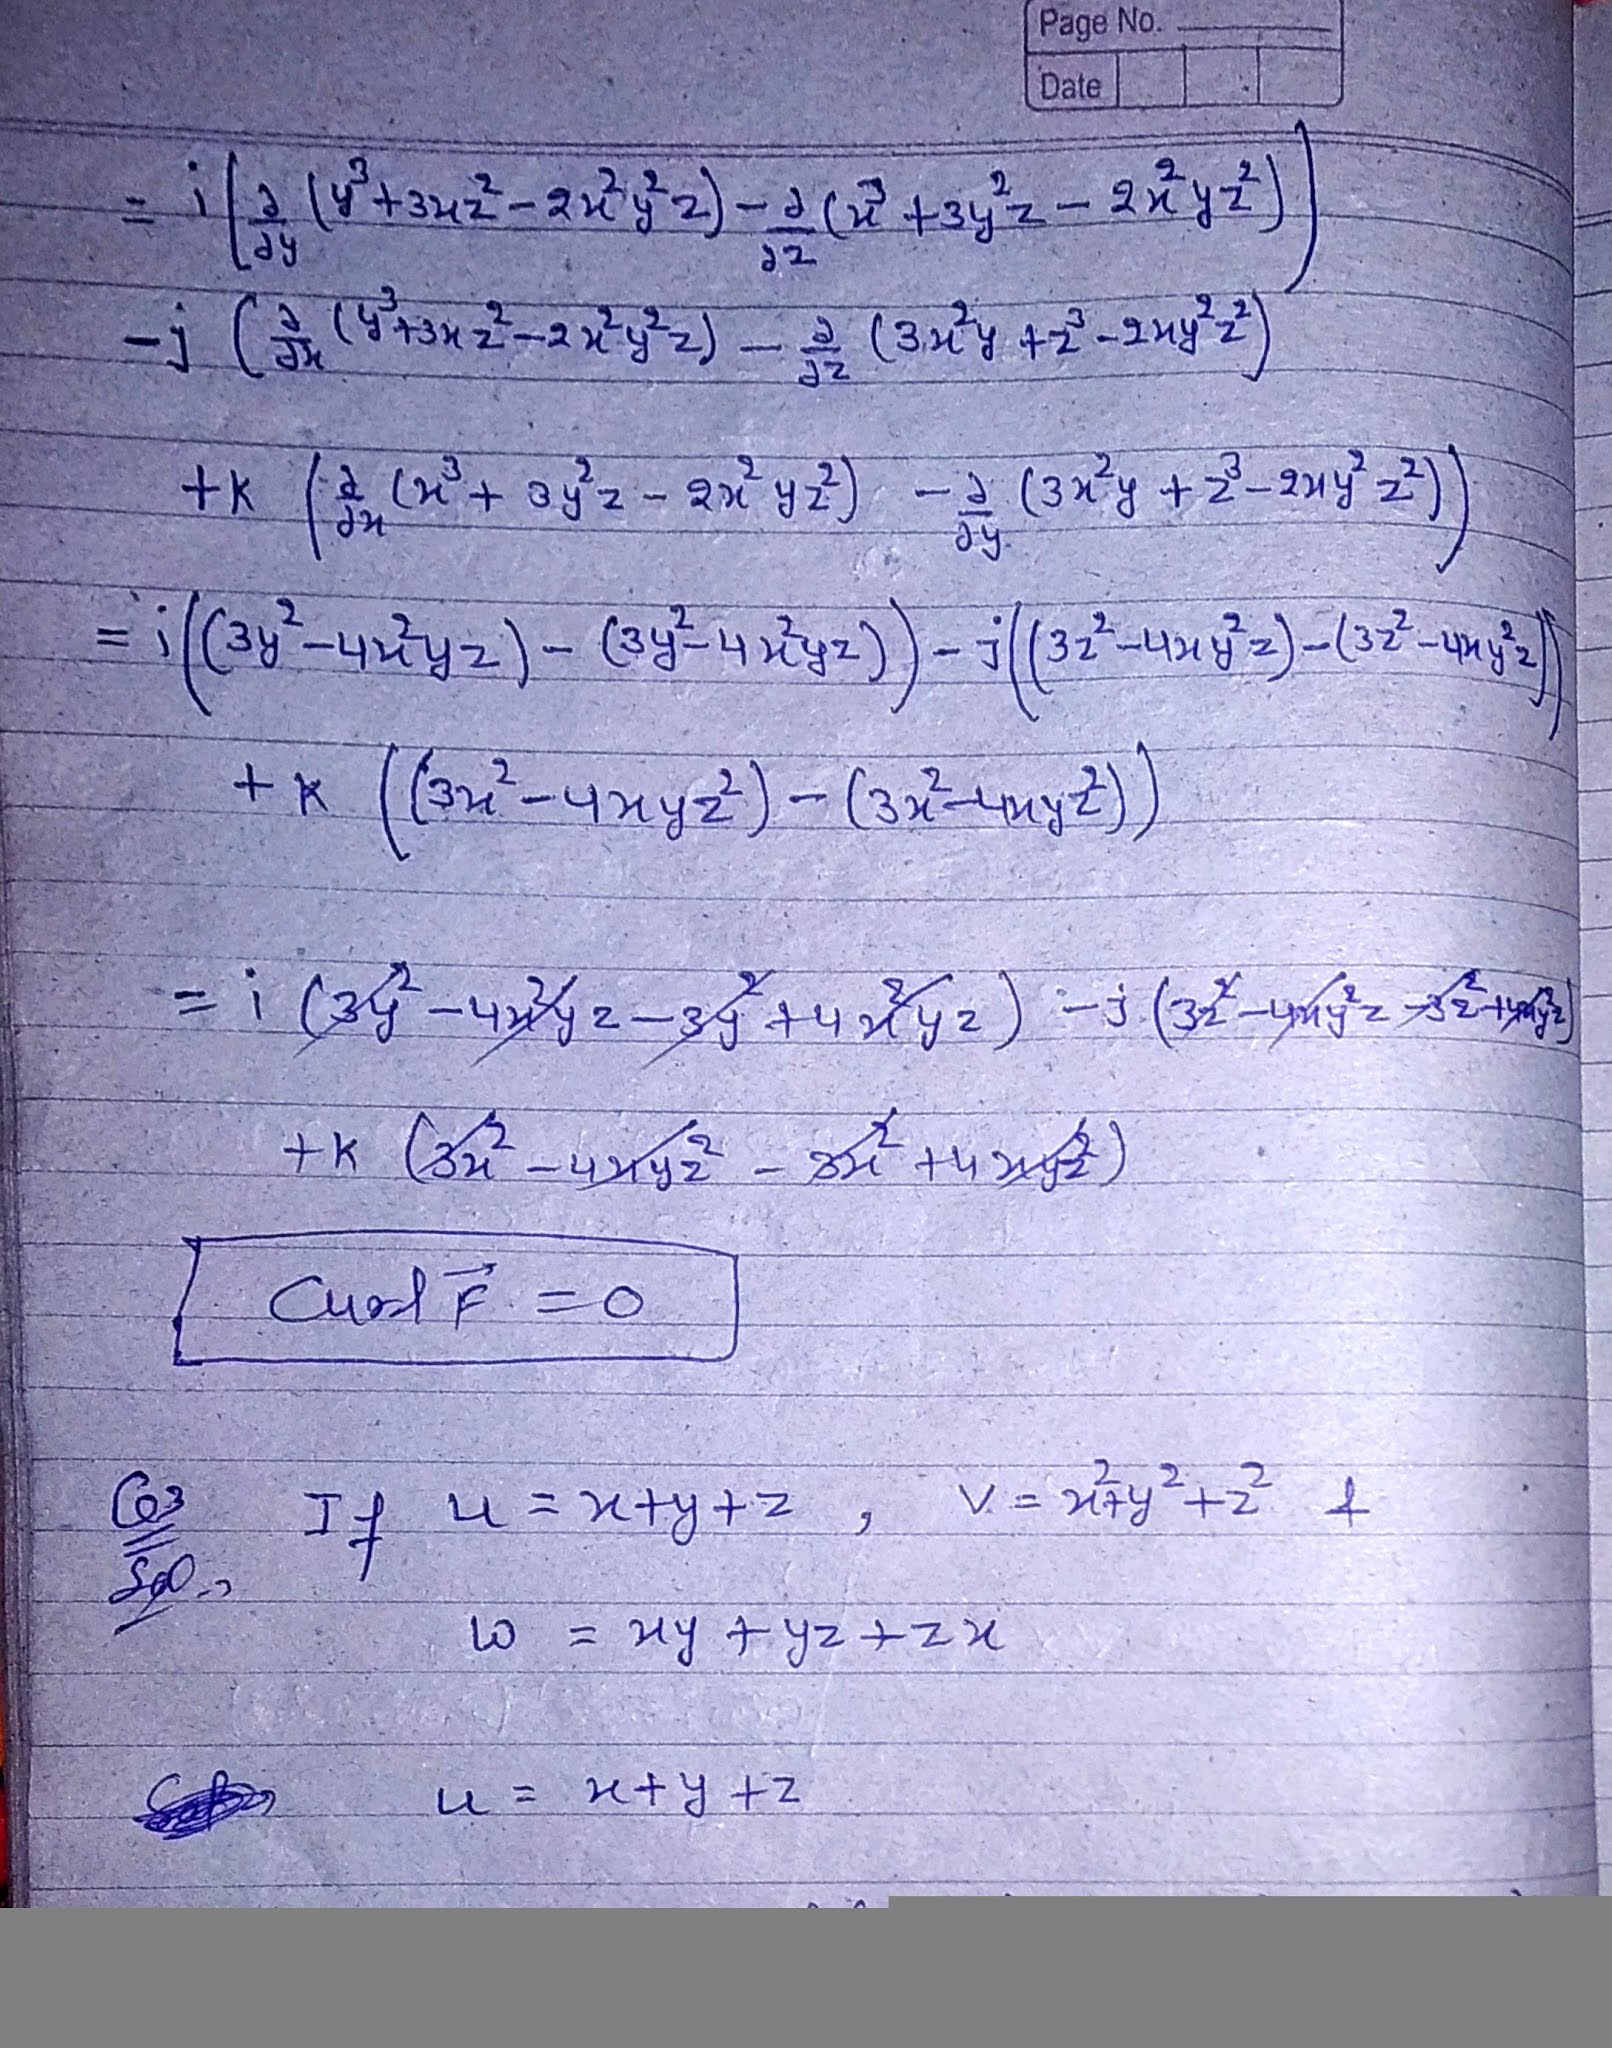 Page No.
Date
= i (∂/∂y (y³+3xz²-2x²y²z) - ∂/∂z (x³+3y²z-2x²yz²))
-j (∂/∂x (y³+3xz²-2x²y²z) - ∂/∂z (3x²y+z³-2xy²z²)
+k (∂/∂x (x³+3y²z-2x²yz²) - ∂/∂y (3x²y+z³-2xy²z²))
= i((3y²-4x²yz)-(3y²-4x²yz))-j((3z²-4xy²z)-(3z²-4xy²z))
+k ((3x²-4xyz²)-(3x²-4xyz²))
= i (3y²-4x²yz-3y²+4x²yz) -j (3z²-4xy²z-3z²+4xy²z)
+k (3x²-4xyz²-3x²+4xyz²)
Curl F⃗ = 0
If u = x+y+z , v = x²+y²+z² &
Sol
w = xy+yz+zx
u = x+y+z